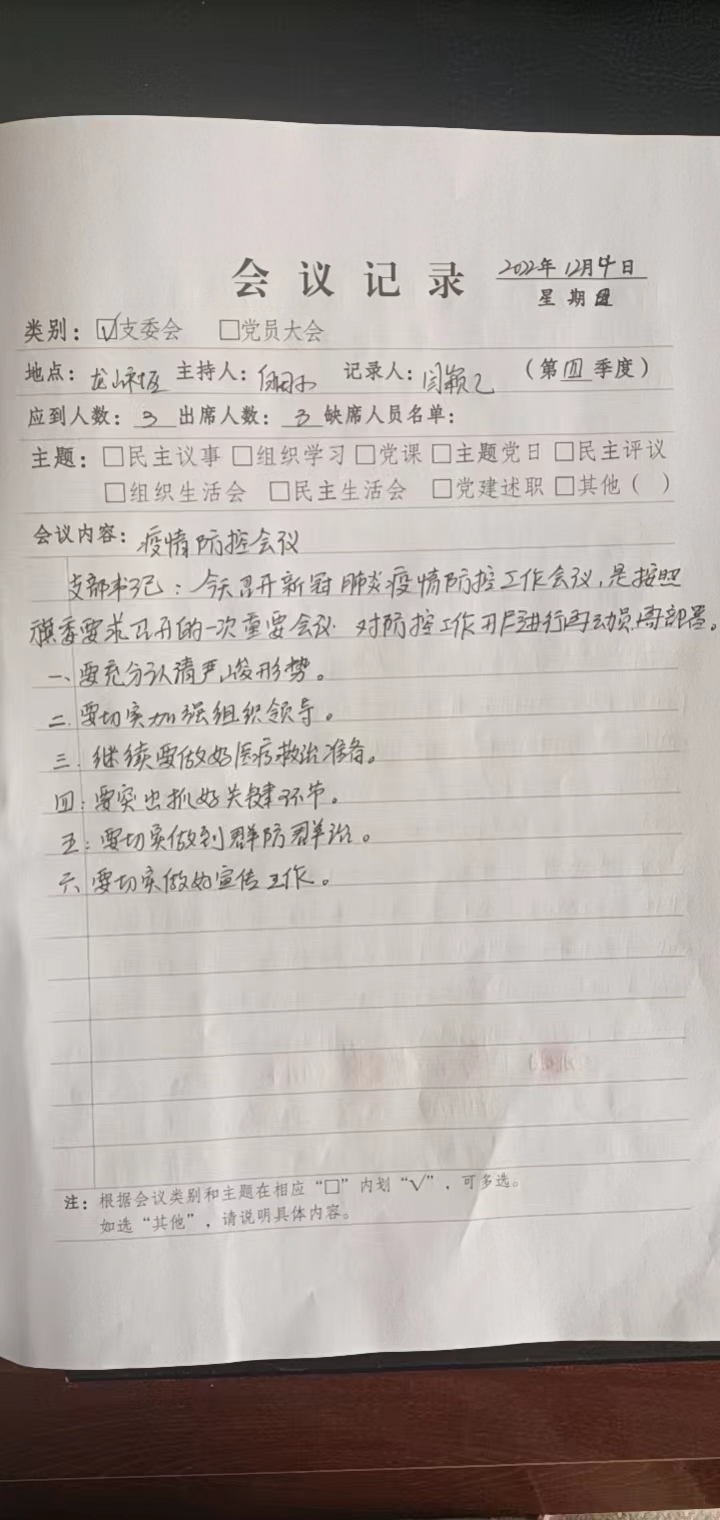 会议记录 2022年12月4日
星期
类别：☑支委会 □党员大会
地点： 主持人： 记录人：闫颖 （第四季度）
应到人数：3 出席人数：3 缺席人员名单：
主题：□民主议事 □组织学习 □党课 □主题党日 □民主评议
□组织生活会 □民主生活会 □党建述职 □其他（ ）
会议内容：疫情防控会议
支部书记：今天召开新冠肺炎疫情防控工作会议，是按照
旗委要求召开的一次重要会议 对防控工作开展进行再动员再部署。
一、要充分认清严峻形势。
二、要切实加强组织领导。
三、继续要做好医疗救治准备。
四：要突出抓好关键环节。
五：要切实做到群防群治。
六、要切实做好宣传工作。
注：根据会议类别和主题在相应“□”内划“√”，可多选。
如选“其他”，请说明具体内容。